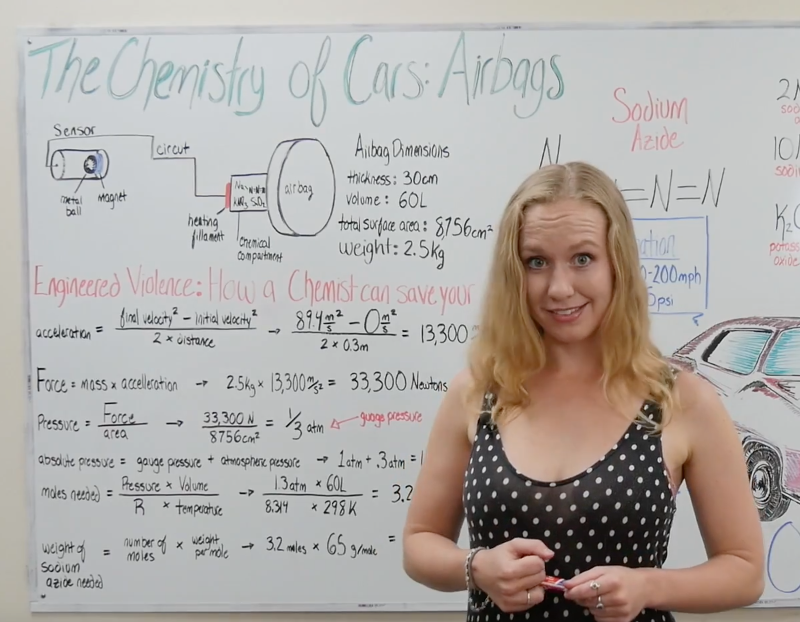 The Chemistry of Cars: Airbags
Sensor
circut
metal ball
magnet
heating fillament
chemical compartment
airbag
Airbag Dimensions
thickness: 30cm
volume: 60L
total surface area: 8,756cm²
weight: 2.5kg
Sodium
Azide
N
=N=N
-200mph
5psi
Engineered Violence: How a Chemist can save your
acceleration = final velocity² - initial velocity² / 2 × distance → 89.4 m²/s - 0 m²/s / 2 × 0.3m = 13,300
Force = mass × acceleration → 2.5kg × 13,300 m/s² = 33,300 Newtons
Pressure = Force / area → 33,300 N / 8756cm² = 1/3 atm ← guage pressure
absolute pressure = gauge pressure + atmospheric pressure → 1atm + .3atm = 1
moles needed = Pressure × Volume / R × temperature → 1.3atm × 60L / 8.314 × 298K = 3.2
weight of sodium azide needed = number of moles × weight per mole → 3.2 moles × 65 g/mole =